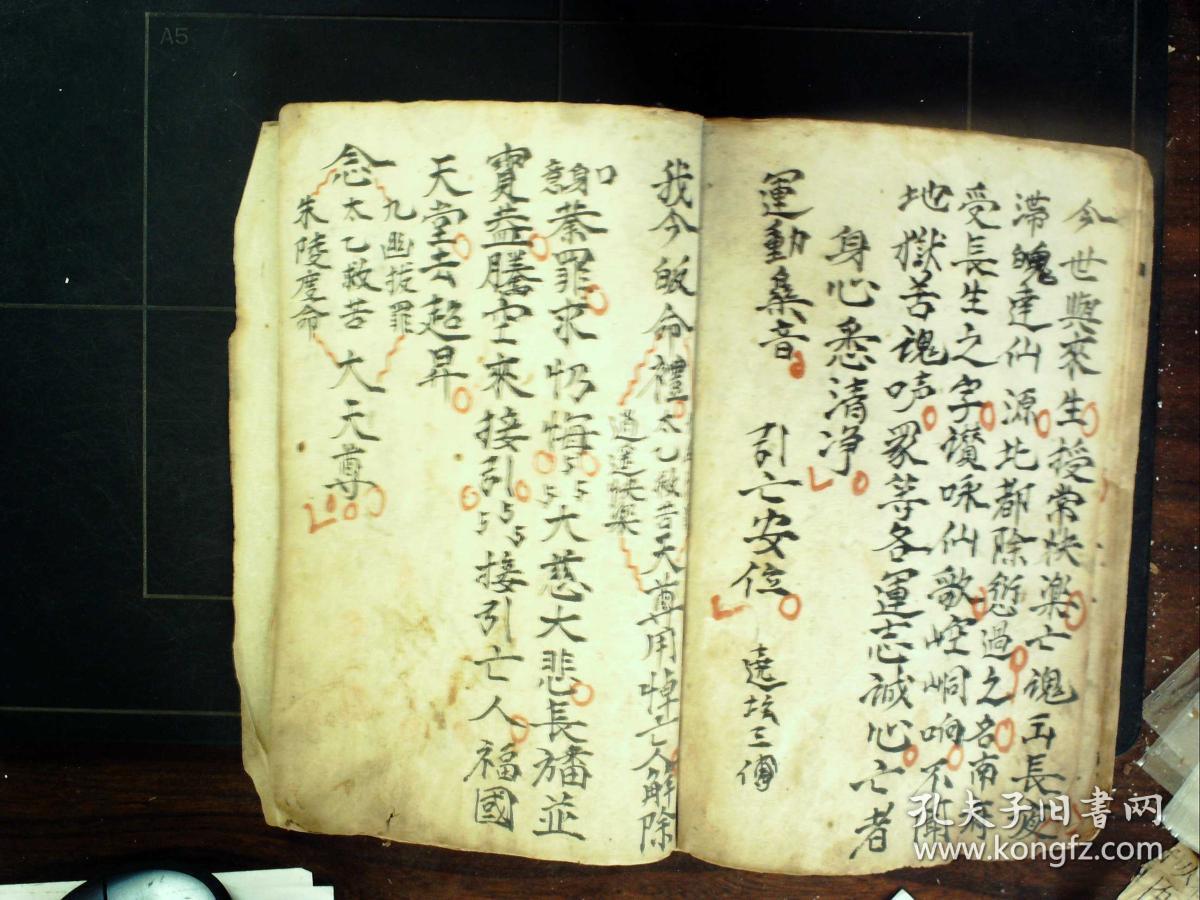 今世與來生授常快樂亡魂出長夜
滯魄達仙源北都除愆過之名南府
受長生之字讚咏仙歌崆峒响不聞
地獄苦魂吟眾等各運志誠心亡者
身心悉清净
運動集音 引亡安位 遶坛三傅
我今皈命禮太乙救苦天尊用悼亡人解除
逍遥快樂
口身意業罪求忏悔〻〻大慈大悲長旛並
寶盖騰空來接引〻〻接引亡人福國
天堂去超昇
九幽拔罪
念太乙救苦大天尊
朱陵度命
A5
孔夫子旧书网
www.kongfz.com